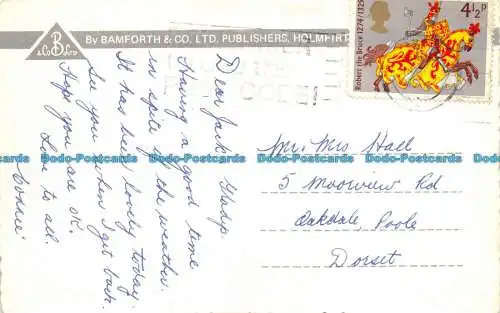 By BAMFORTH & CO. LTD. PUBLISHERS, HOLMFIRT
B
& Co Ltd
4½P
Robert the Bruce 1274/1329
CODE!
Dear Jack Gladys.
Having a good time
in spite of the weather.
It has been lovely today.
See you when I get back.
Hope you are ok.
Love to all.
Connie
Mr. Mrs Hall
5 Moorview Rd
Oakdale, Poole
Dorset
Dodo-Postcards Dodo-Postcards Dodo-Postcards Dodo-Postcards Dodo-Postcards